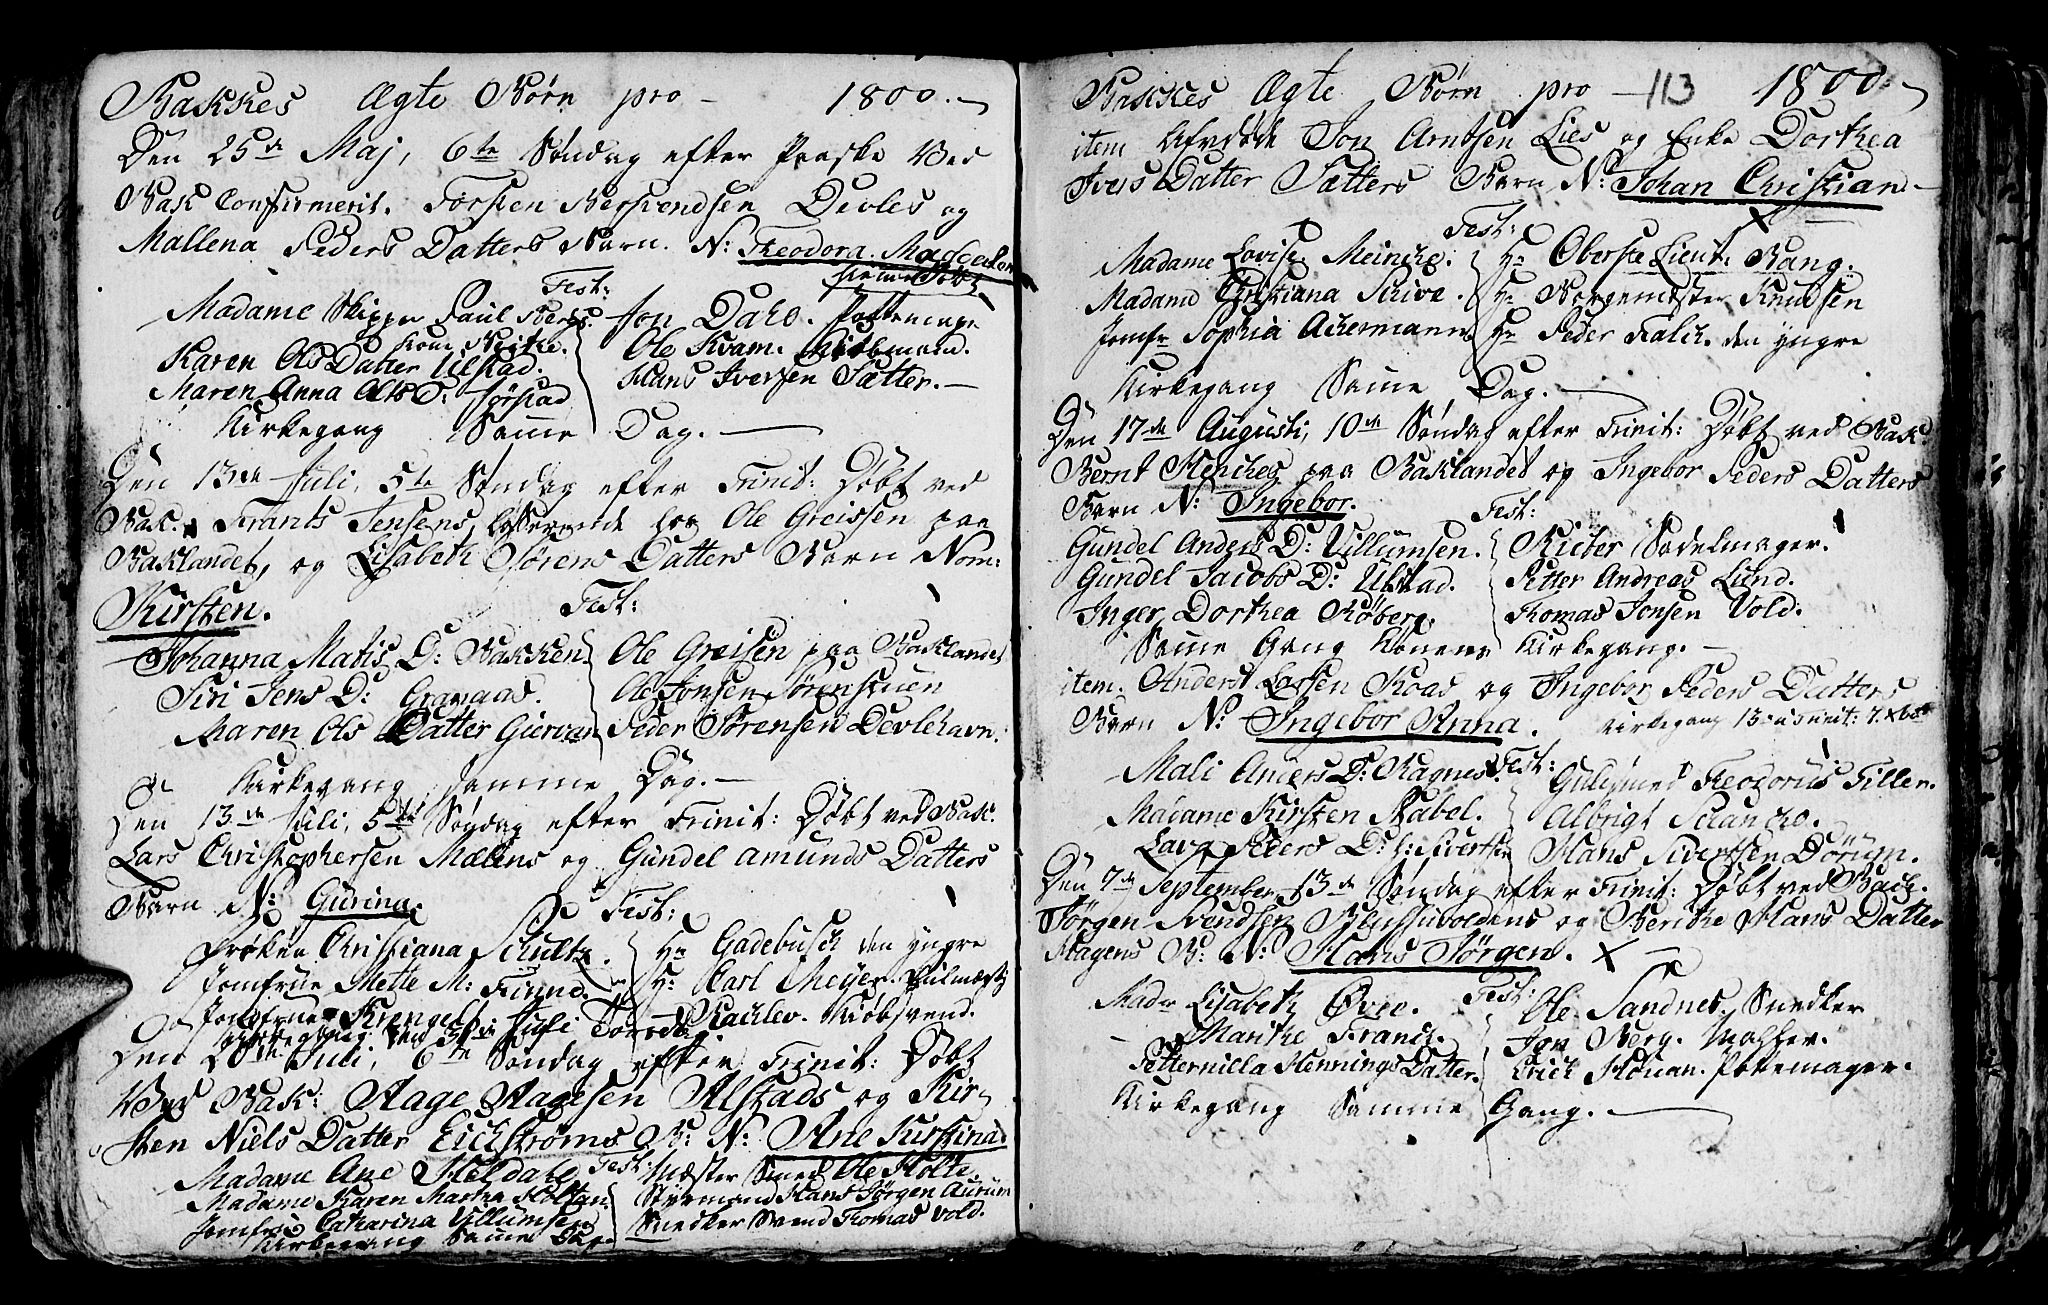 Bakkes Ægte Børn pro - 1800.
Den 25de Maj, 6te Søndag efter Paaske Ved
Bak Confirmerit. Torsten Berstendsen Devles og
Mallena Peders Datters Barn. N: Theodora Magdalena
hiemme Døbt
Test:
Madame Skipper Paul Bergs. Jon Dahl. Pottemager
Karen Ols Datter Ulstad. Ole Kvam.
Maren Anna Ols D: Sørstad Hans Iversen Sætter.
Kirkegang Samme Dag.
Den 13de Juli, 5te Søndag efter Trinit: Døbt ved
Bak. Frants Jensens, Logerende hos Ole Greissen paa
Baklandet, og Lisabeth Sørens Datters Barn Nom:
Kirsten. Test:
Johanna Matis D: Bakken. Ole Greisen paa Baklandet
Siri Jens D: Granaas. Ole Jonsen Sørenstuen
Maren Ols Datter Gurvan Peder Sørensen Devlehavn.
Kirkegang samme Dag.
Den 13de Juli, 5te Søndag efter Trinit: Døbt ved Bak.
Lars Christophersen Mælens og Gundel Amunds Datters
Barn N: Gurina. Test:
Frøken Christiana Schultz. Hr Gadebusch den yngre
Jomfrue Mette M: Friind. Hr Carl Meyer.
Jomfrue Krengel: Rachlev. Kiøbsvend.
Kirkegang den Juli
Den 20de Juli, 6te Søndag efter Trinit: Døbt
Ved Bak: Aage Aagesen Alstads og Kir-
sten Niels Datter Eichstrøms B: N: Ane Kirstina.
Madame Ane Heldahl Test: Mæster Smed Ole Holte.
Madame Karen Martha Holtan Styrmand Hans Jørgen Aurum
Jomfr Catharina Villumsen Snedker Svend Thomas Vold.
Kirkegang Samme Dag.
Bakkes Ægte Børn pro - 113 1800.
item Afdøde Jon Arntsen Lies og Enke Dorthea
Ivers Datter Sætters Barn N: Johan Christian
Test:
Madame Lovise Meincke. Hr Oberste Lieut: Bang.
Madame Christiana Schive. Hr Borgemester Knudsen
Jomfr Sophia Achermann. Hr Peder Falch den yngre
Kirkegang Samme Dag.
Den 17de Augusti, 10de Søndag efter Trinit: Døbt ved Bak
Bernt Henches paa Baklandet og Ingebor Peders Datters
Barn N: Ingebor. Test:
Gundel Anders D: Villumsen. Sadelmager.
Gundel Jacobs D: Ulstad. Petter Andreas Lund.
Inger Dorthea Røberg. Thomas Jonsen Vold.
Samme Gang Konens Kirkegang.
item. Anders Larsen Roas og Ingebor Peders Datters
Barn N: Ingebor Anna. Kirkegang 13 Trinit: 7. 7br
Mali Anders D: Ragnes. Test: Gulsmed Theodorus Tiller.
Madame Kirsten Stabel. Albrigt Schancke.
Lava Peders D: Sivertsen Hans Sivertsen Dørum.
Den 7de September, 13de Søndag efter Trinit: Døbt ved Bach.
Jørgen Svendsen Blussuvoldens og Berithe Hans Datter
Hagens B: N: Hans Jørgen. X
Madm Lisabeth Øvre. Test: Ole Sandnes. Snedker
Marithe Franch. Jon Berg. Mahler.
Petternilla Hennings Datter. Erich Houan. Pottemager.
Kirkegang Samme Gang.